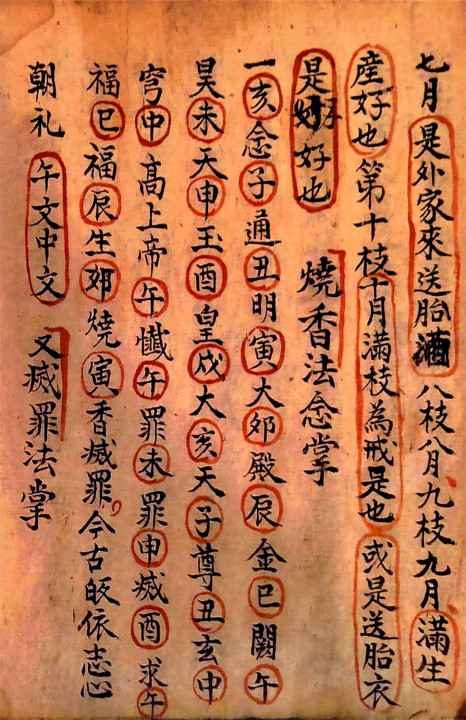 七月是外家來送胎酒八枝八月九枝九月滿生
産好也第十枝十月滿枝為戒是也或是送胎衣
是好好也
燒香法念掌
一亥念子通丑明寅大夘殿辰金巳闕午
昊未天申玉酉皇戍大亥天子尊丑玄中
穹中高上帝午懺午罪未罪申滅酉求午
福巳福辰生夘燒寅香滅罪今古皈依志心
朝礼午文中文
又滅罪法掌